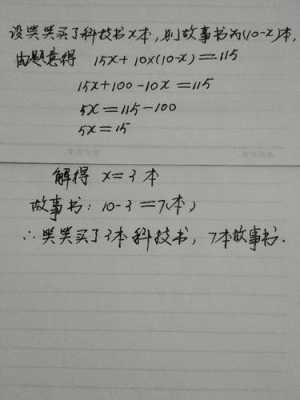 设哭哭买了科技书x本,则故事书为(10-x)本,
由题意得 15x+10×(10-x)=115
15x+100-10x=115
5x=115-100
5x=15
解得 x=3 本
故事书: 10-3=7(本)
∴哭哭买了3本科技书, 7本故事书.